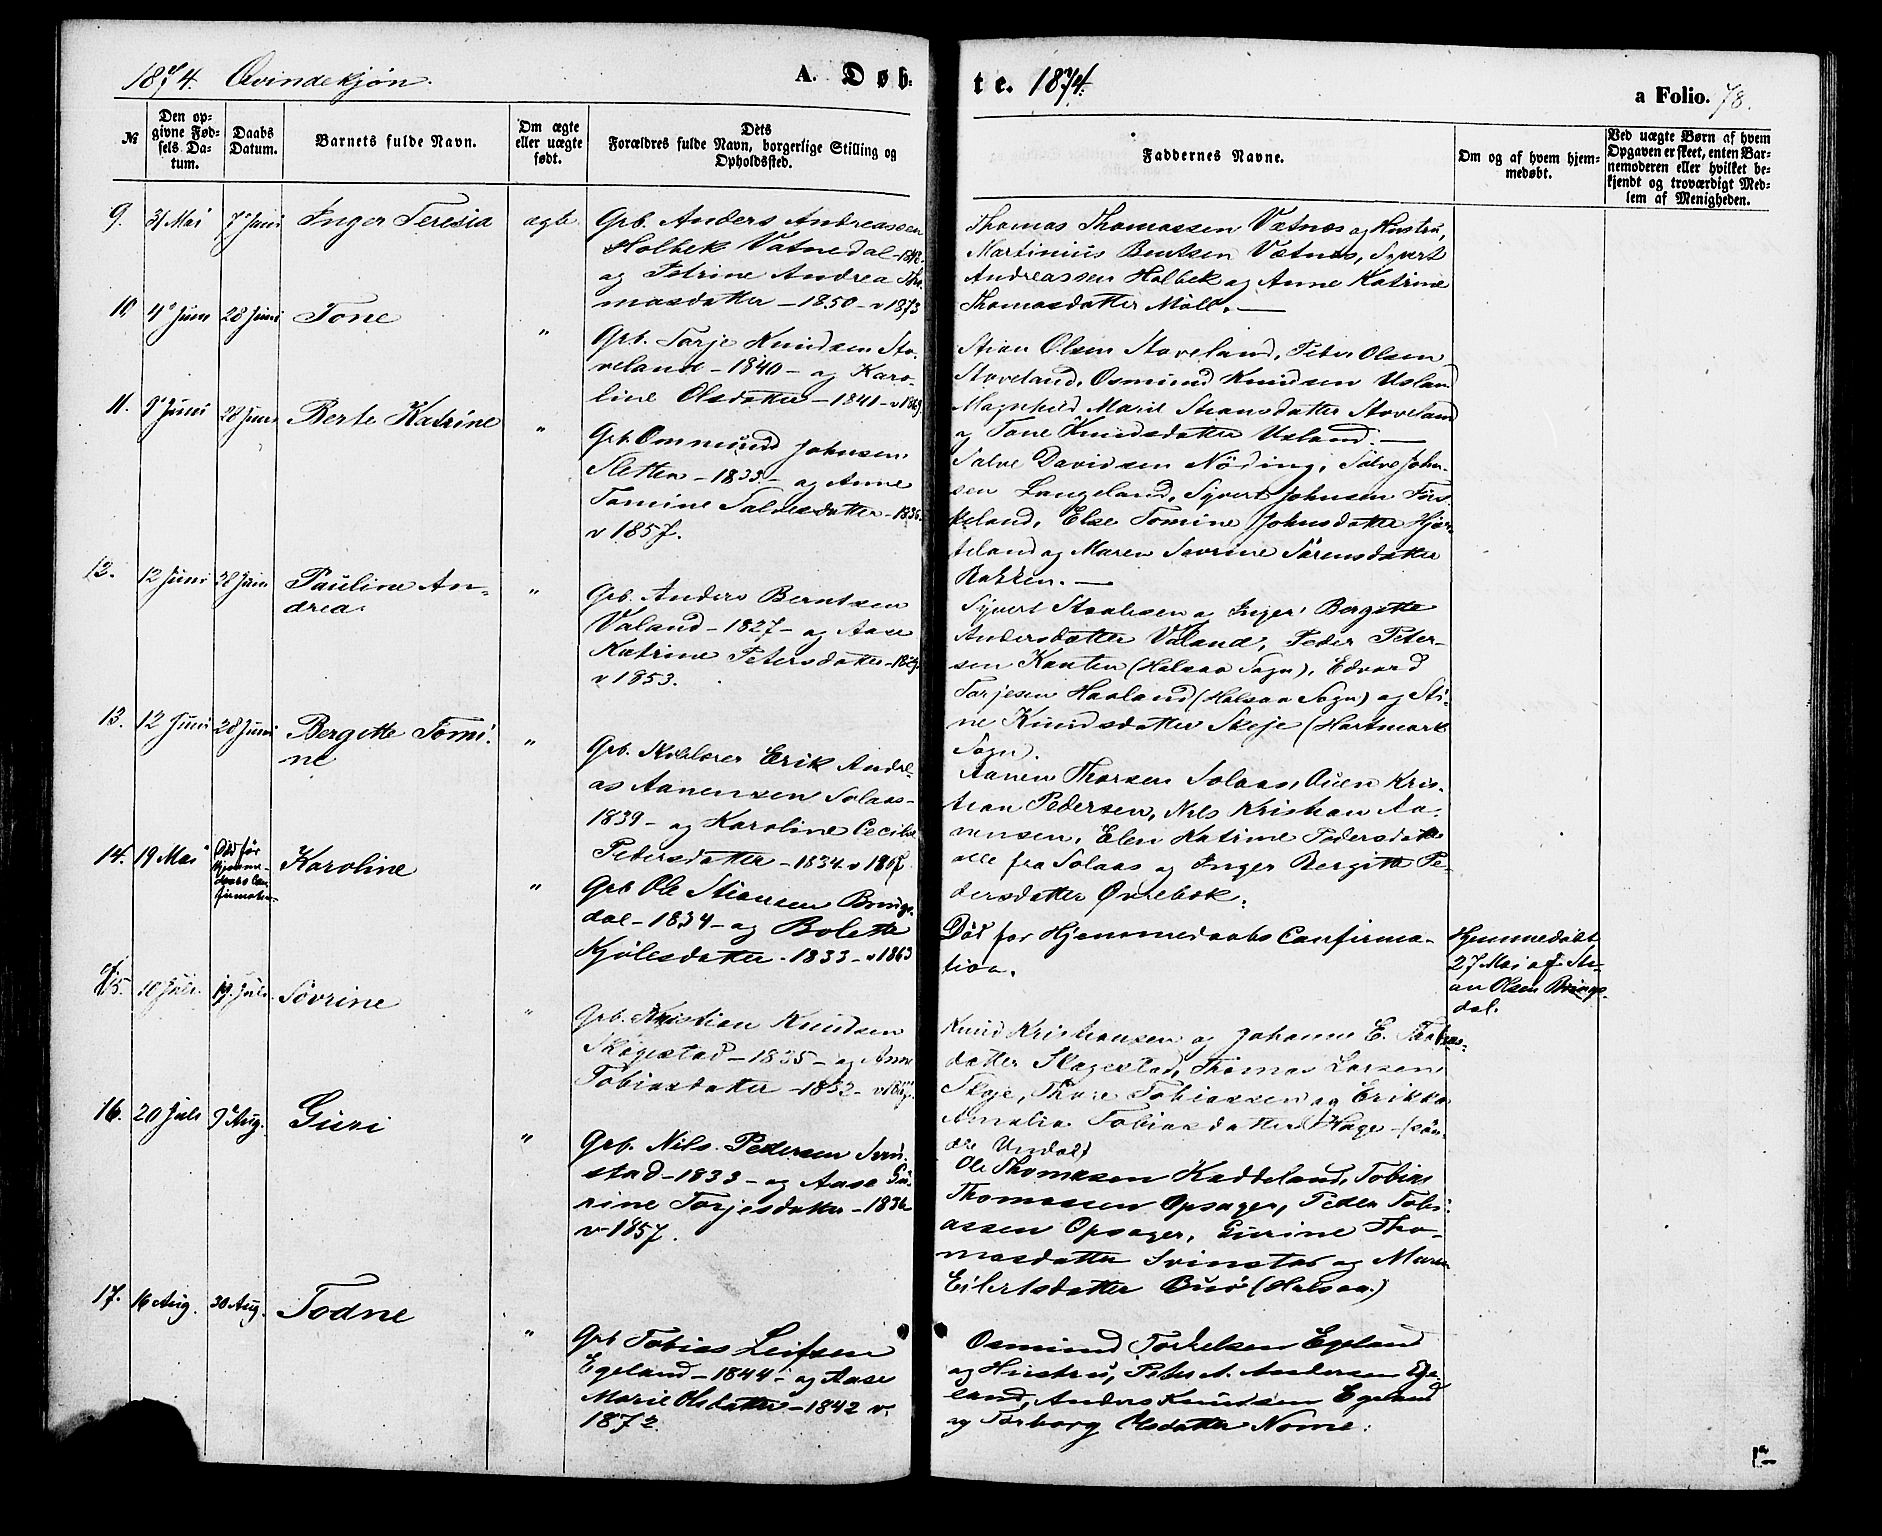 1874. Qvindekjøn.
A. Døb-
te. 1874.
a Folio. 78.
№
Den op-
givne Fød-
sels Da-
tum.
Daabs
Datum.
Barnets fulde Navn.
Om ægte
eller uægte
født.
Dets
Forældres fulde Navn, borgerlige Stilling og
Opholdssted.
Faddernes Navne.
Om og af hvem hjem-
medøbt.
Ved uægte Børn af hvem
Opgaven er skeet, enten Bar-
nemoderen eller hvilket be-
kjendt og troværdigt Med-
lem af Menigheden.
9. 31 Mai 7de Juni Inger Teresia ægte
Grb. Anders Andreassen
Holbek Vatnedal
og Petrine Andrea Tho-
masdatter - 1850 - v 1873
Thomas Thomassen Vatnes og Hustru,
Martinius Bentsen Vatnes, Syvert
Andreassen Holbek og Anne Katrine
Thomasdatter Møll. —
10 4de Juni 28 Juni Tone "
Grb. Torje Knudsen Sto-
veland - 1840 - og Karo-
line Olsdatter - 1841 - v 1869
Stian Olsen Stoveland, Peter Olsen
Stoveland, Osmund Knudsen Usland
Magnhild Marie Stiansdatter Stoveland
og Tone Knudsdatter Usland. —
11. 9de Juni 28 Juni Berte Katrine "
Grb. Ommund Johnsen
Sletten - 1833 - og Anne
Tomine Salvesdatter - 1836
v 1857.
Salve Davidsen Nøding, Salve John-
sen Langeland, Syvert Johnsen
Else Tomine Johnsdatter
og Maren Sovrine Sørensdatter
Bakken. —
12. 12 Juni 28 Juni Pauline An-
drea. "
Grb. Anders Berntsen
Valand - 1827 - og Aase
Katrine Petersdatter
v 1853.
Syvert Staalesen og Inger Bergitte
Andersdatter Valand, Peder Peter-
sen Kanten (Halsaa Sogn), Edvard
Torjesen Haaland (Halsaa Sogn) og Sti-
ne Knudsdatter Skeje (Hartmark
Sogn).
13. 12 Juni 28 Juni Bergitte Tomi-
ne "
Grb. Skolelærer Erik Andre-
as Aanensen Solaas -
1839 - og Karoline Cecilie
Petersdatter - 1834 - v 1867
Aanen Thorsen Solaas, Ouen Kris-
tian Pedersen, Nils Kristian Aa-
nensen, Elen Katrine Pedersdatter
alle fra Solaas og Inger Bergitte Pe-
dersdatter Øvrebøk.
14. 19 Mai Død før
Hjemme-
daabs Con-
firmation Karoline "
Grb Ole Stiansen Brings-
dal - 1834 - og Bolette
Kjølesdatter - 1833 - v 1863
Død før Hjemmedaabs Confirma-
tion.
Hjemmedøbt
27 Mai af Sti-
an Olsen Brings-
dal.
15. 10 Juli 19. Juli Sovrine "
Grb. Kristian Knudsen
Skagestad - 1835 - og Anne
Tobiasdatter - 1832 -
Knud Kristiansen og Johanne E. Tobias-
datter Skagestad, Thomas Larsen
Skeje, Thore Tobiassen og Erikka
Amalia Tobiasdatter Hage (søn-
dre Undal)
16. 20 Juli 9de Aug. Guri "
Grb. Nils Pedersen Svin-
stad - 1833 - og Aase Gu-
rine Torjesdatter - 1836
v 1857.
Ole Thomasen Kaddeland, Tobias
Thomassen Opsager, Peder Tobi-
assen Opsager, Gurine Tho-
masdatter Svinstad og Maren
Eilertsdatter Buø (Halsaa.)
17. 16 Aug. 30 Aug. Todne "
Grb Tobias Leifsen
Egeland - 1844 - og Aase
Marie Olsdatter - 1842 v.
1872.
Osmund Torkelsen Egeland
og Hustru, Peter A. Andersen Ege-
land, Anders Knudsen Egeland
og Torborg Olsdatter Nome.